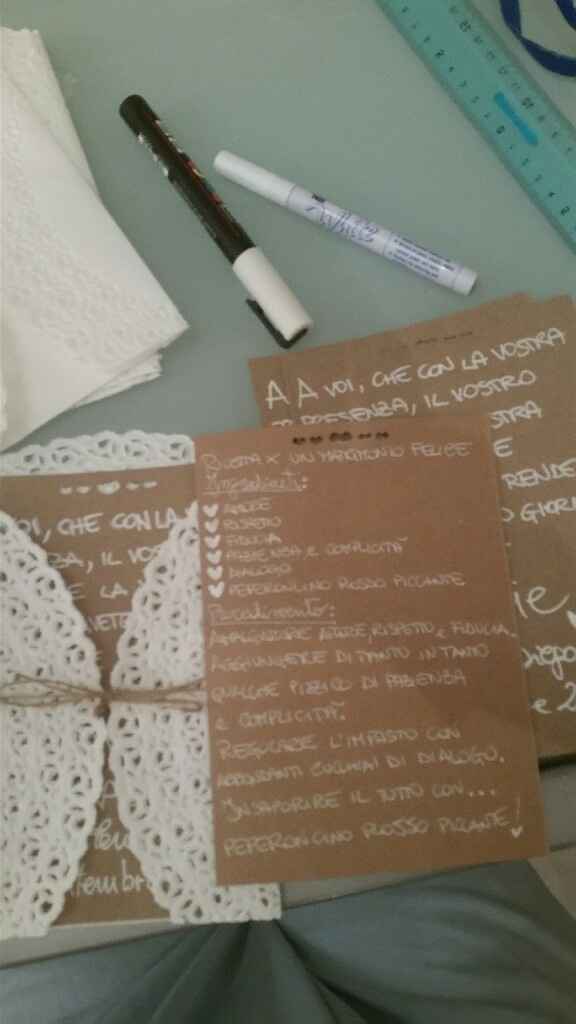 A A VOI, CHE CON LA VOSTRA
PRESENZA, IL VOSTRO
STRA
E
RENDE
GIOR
VOI, CHE CON LA
IL VOS
E LA
RICETTA X UN MATRIMONIO FELICE
Ingredienti:
AMORE
RISPETTO
FIDUCIA
PAZIENZA E COMPLICITÀ
DIALOGO
PEPERONCINO ROSSO PICCANTE
Procedimento:
AMORE, RISPETTO e FIDUCIA.
AGGIUNGERE DI TANTO IN TANTO
QUALCHE PIZZICO DI PAZIENZA
e COMPLICITÀ.
REGOLARE L'IMPASTO CON
ABBONDANTI CUCCHIAI DI DIALOGO.
INSAPORIRE IL TUTTO CON...
PEPERONCINO ROSSO PICCANTE!
tembr
e 2